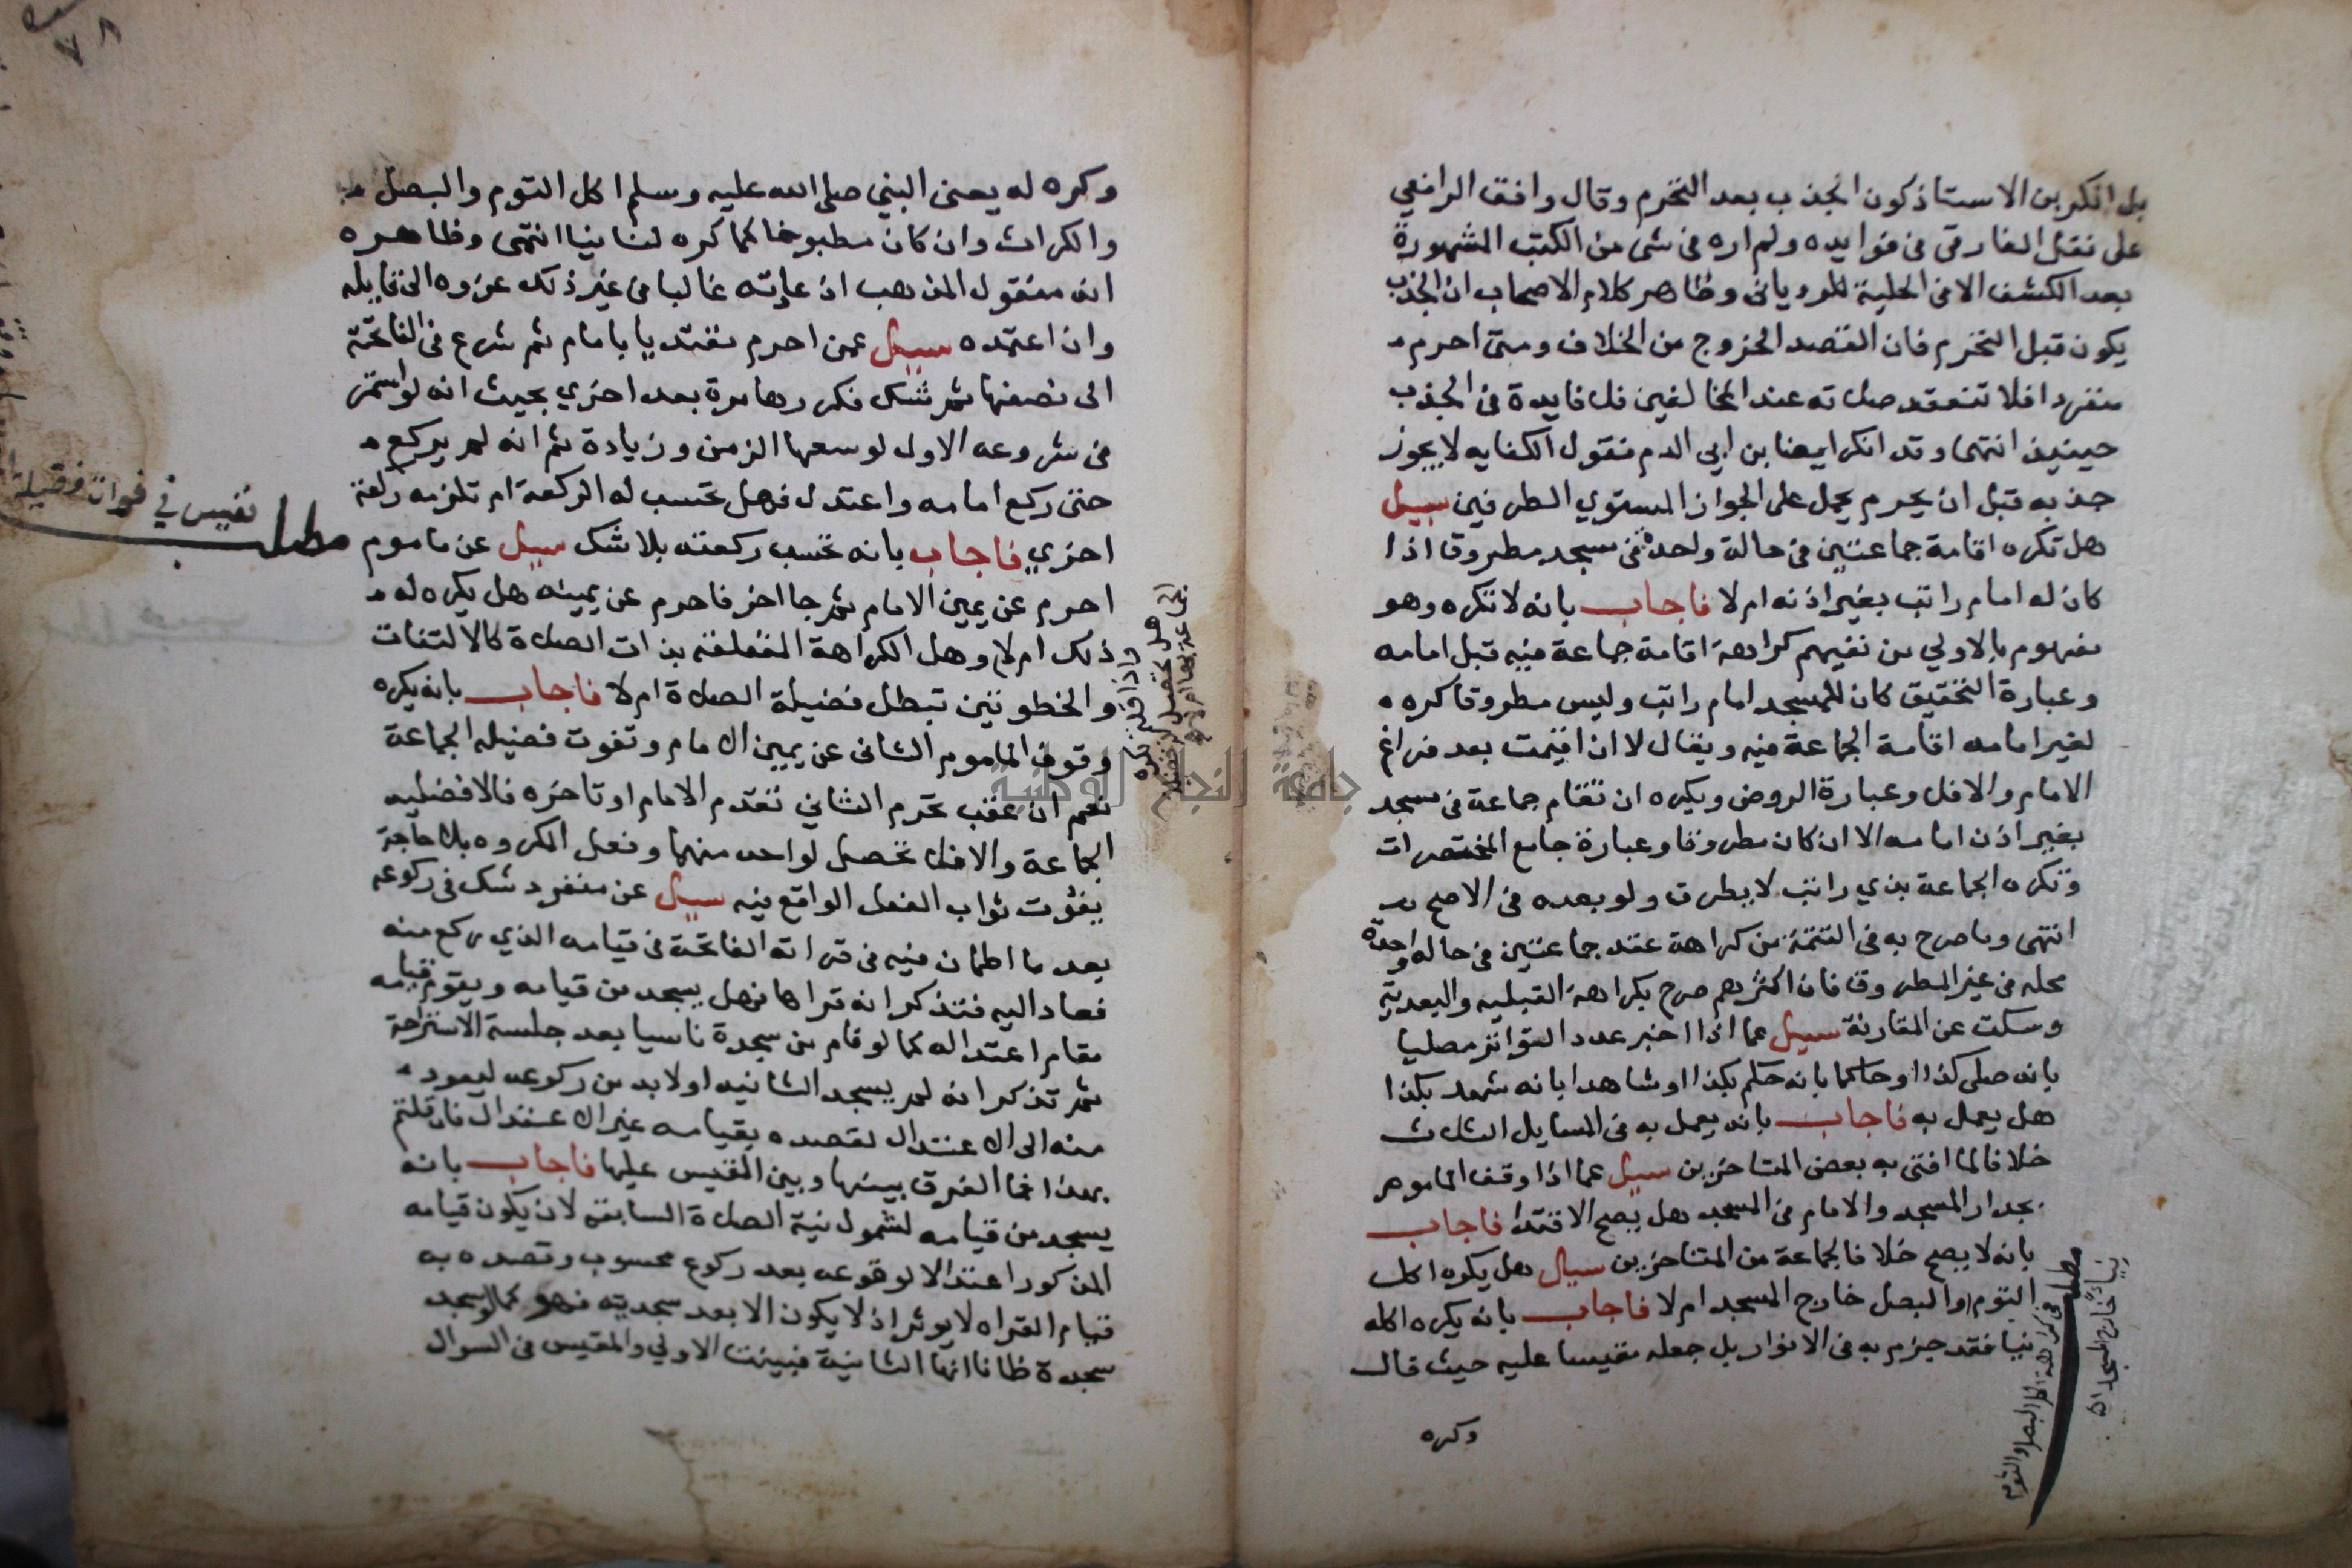 بل انكر بن الاستاذ كون الجذب بعد التحرم وقال وافق الرافعي
على نقل الفارقي في فوايده ولم اره في شي من الكتب المشهورة
بعد الكشف الا في الحلية للروياني وظاهر كلام الاصحاب ان الجذب
يكون قبل التحرم فان القصد الخروج من الخلاف ومتى احرم
منفردا فلا تنعقد صلاته عند المخالفين فلا فايدة في الجذب
حينيذ انتهى وقد انكر ايضا بن ابي الدم منقول الكفايه لا يجوز
جذبه قبل ان يحرم يحمل على الجواز المستوي الطرفين سيل
هل تكره اقامة جماعتين في حالة واحدة في مسجد مطروق اذا
كان له امام راتب بغير اذنه ام لا فاجاب بانه لا تكره وهو
مفهوم بالاولي من نفيهم كراهة اقامة جماعة فيه قبل امامه
وعبارة التحقيق كان للمسجد امام راتب وليس مطروقا كره
لغير امامه اقامة الجماعة فيه ويقال لا ان اقيمت بعد فراغ
الامام والا فلا وعبارة الروض ويكره ان تقام جماعة في مسجد
بغير اذن امامه الا ان كان مطروقا وعبارة جامع المختصرات
وتكره الجماعة بذي راتب لا يطرق ولو بعده في الاصح
انتهى وما صرح به في التتمة من كراهة عقد جماعتين في حاله واحدة
محله في غير المطروق فان اكثرهم صرح بكراهة القبليه والبعدية
وسكت عن المقارنة سيل عما اذا اخبر عدد التواتر مصليا
بانه صلى كذا اوحاكما بانه حكم بكذا اوشاهدا بانه شهد بكذا
هل يعمل به فاجاب بانه يعمل به في المسايل الثلاث
خلافا لما افتى به بعض المتاخرين سيل عما اذا وقف الماموم
بجدار المسجد والامام في المسجد هل يصح الاقتدا فاجاب
بانه لا يصح خلافا لجماعة من المتاخرين سيل هل يكره اكل
الثوم والبصل خارج المسجد ام لا فاجاب بانه يكره اكله
نيا فقد جزم به في الانوار بل جعله مقيسا عليه حيث قال
وكره
مطلب في كراهة اكل البصل والثوم
نيا خارج المسجد
وكره له يعنى النبي صلى الله عليه وسلم اكل الثوم والبصل
والكراث وان كان مطبوخا كما كره لنا نيا انتهى وظاهره
انه منقول المذهب اذ عادته غالبا في غير ذلك عزوه الى قايله
وان اعتمده سيل عمن احرم مقتديا بامام ثم شرع في الفاتحة
الى نصفها ثم شك فكررها مرة بعد اخري بحيث انه لو استمر
في شروعه الاول لوسعها الزمن وزيادة ثم انه لم يركع
حتى ركع امامه واعتدل فهل تحسب له الركعة ام تلزمه ركعة
اخري فاجاب بانه تحسب ركعته بلا شك سيل عن ماموم
احرم عن يمين الامام ثم جا اخر فاحرم عن يمينه هل يكره له
ذلك ام لا وهل الكراهة المتعلقه بذات الصلاة كالالتفات
والخطوتين تبطل فضيلة الصلاة ام لا فاجاب بانه يكره
وقوف الماموم الثاني عن يمين الامام وتفوت فضيله الجماعة
نعم ان عقب تحرم الثاني تقدم الامام او تاخره فالافضليه
الجماعة والا فلا تحصل لواحد منهما وفعل المكروه بلا حاجة
يفوت ثواب الفعل الواقع فيه سيل عن منفرد شك في ركوعه
بعد ما اطمان فيه في قراته الفاتحة في قيامه الذي ركع منه
فعاد اليه فتذكر انه قراها فهل يسجد من قيامه ويقوم قيامه
مقام اعتداله كما لو قام من سجدة ناسيا بعد جلسة الاستراحة
ثم تذكر انه لم يسجد الثانيه او لا بد من ركوعه ليعود
منه الى الاعتدال لقصده بقيامه غير الاعتدال فان قلتم
بهذا فما الفرق بينها وبين المقيس عليها فاجاب بانه
يسجد من قيامه لشمول نية الصلاة السابقه لان يكون قيامه
المذكور اعتدالا لوقوعه بعد ركوع محسوب وقصده به
قيام القراه لا يوثر اذ لا يكون الا بعد سجديه فهو كما لو سجد
سجدة ظانا انها الثانية فبينت الاولي والمقيس في السوال
مطلب نفيس في فوات فضيلة
جامعة النجاح الوطنية